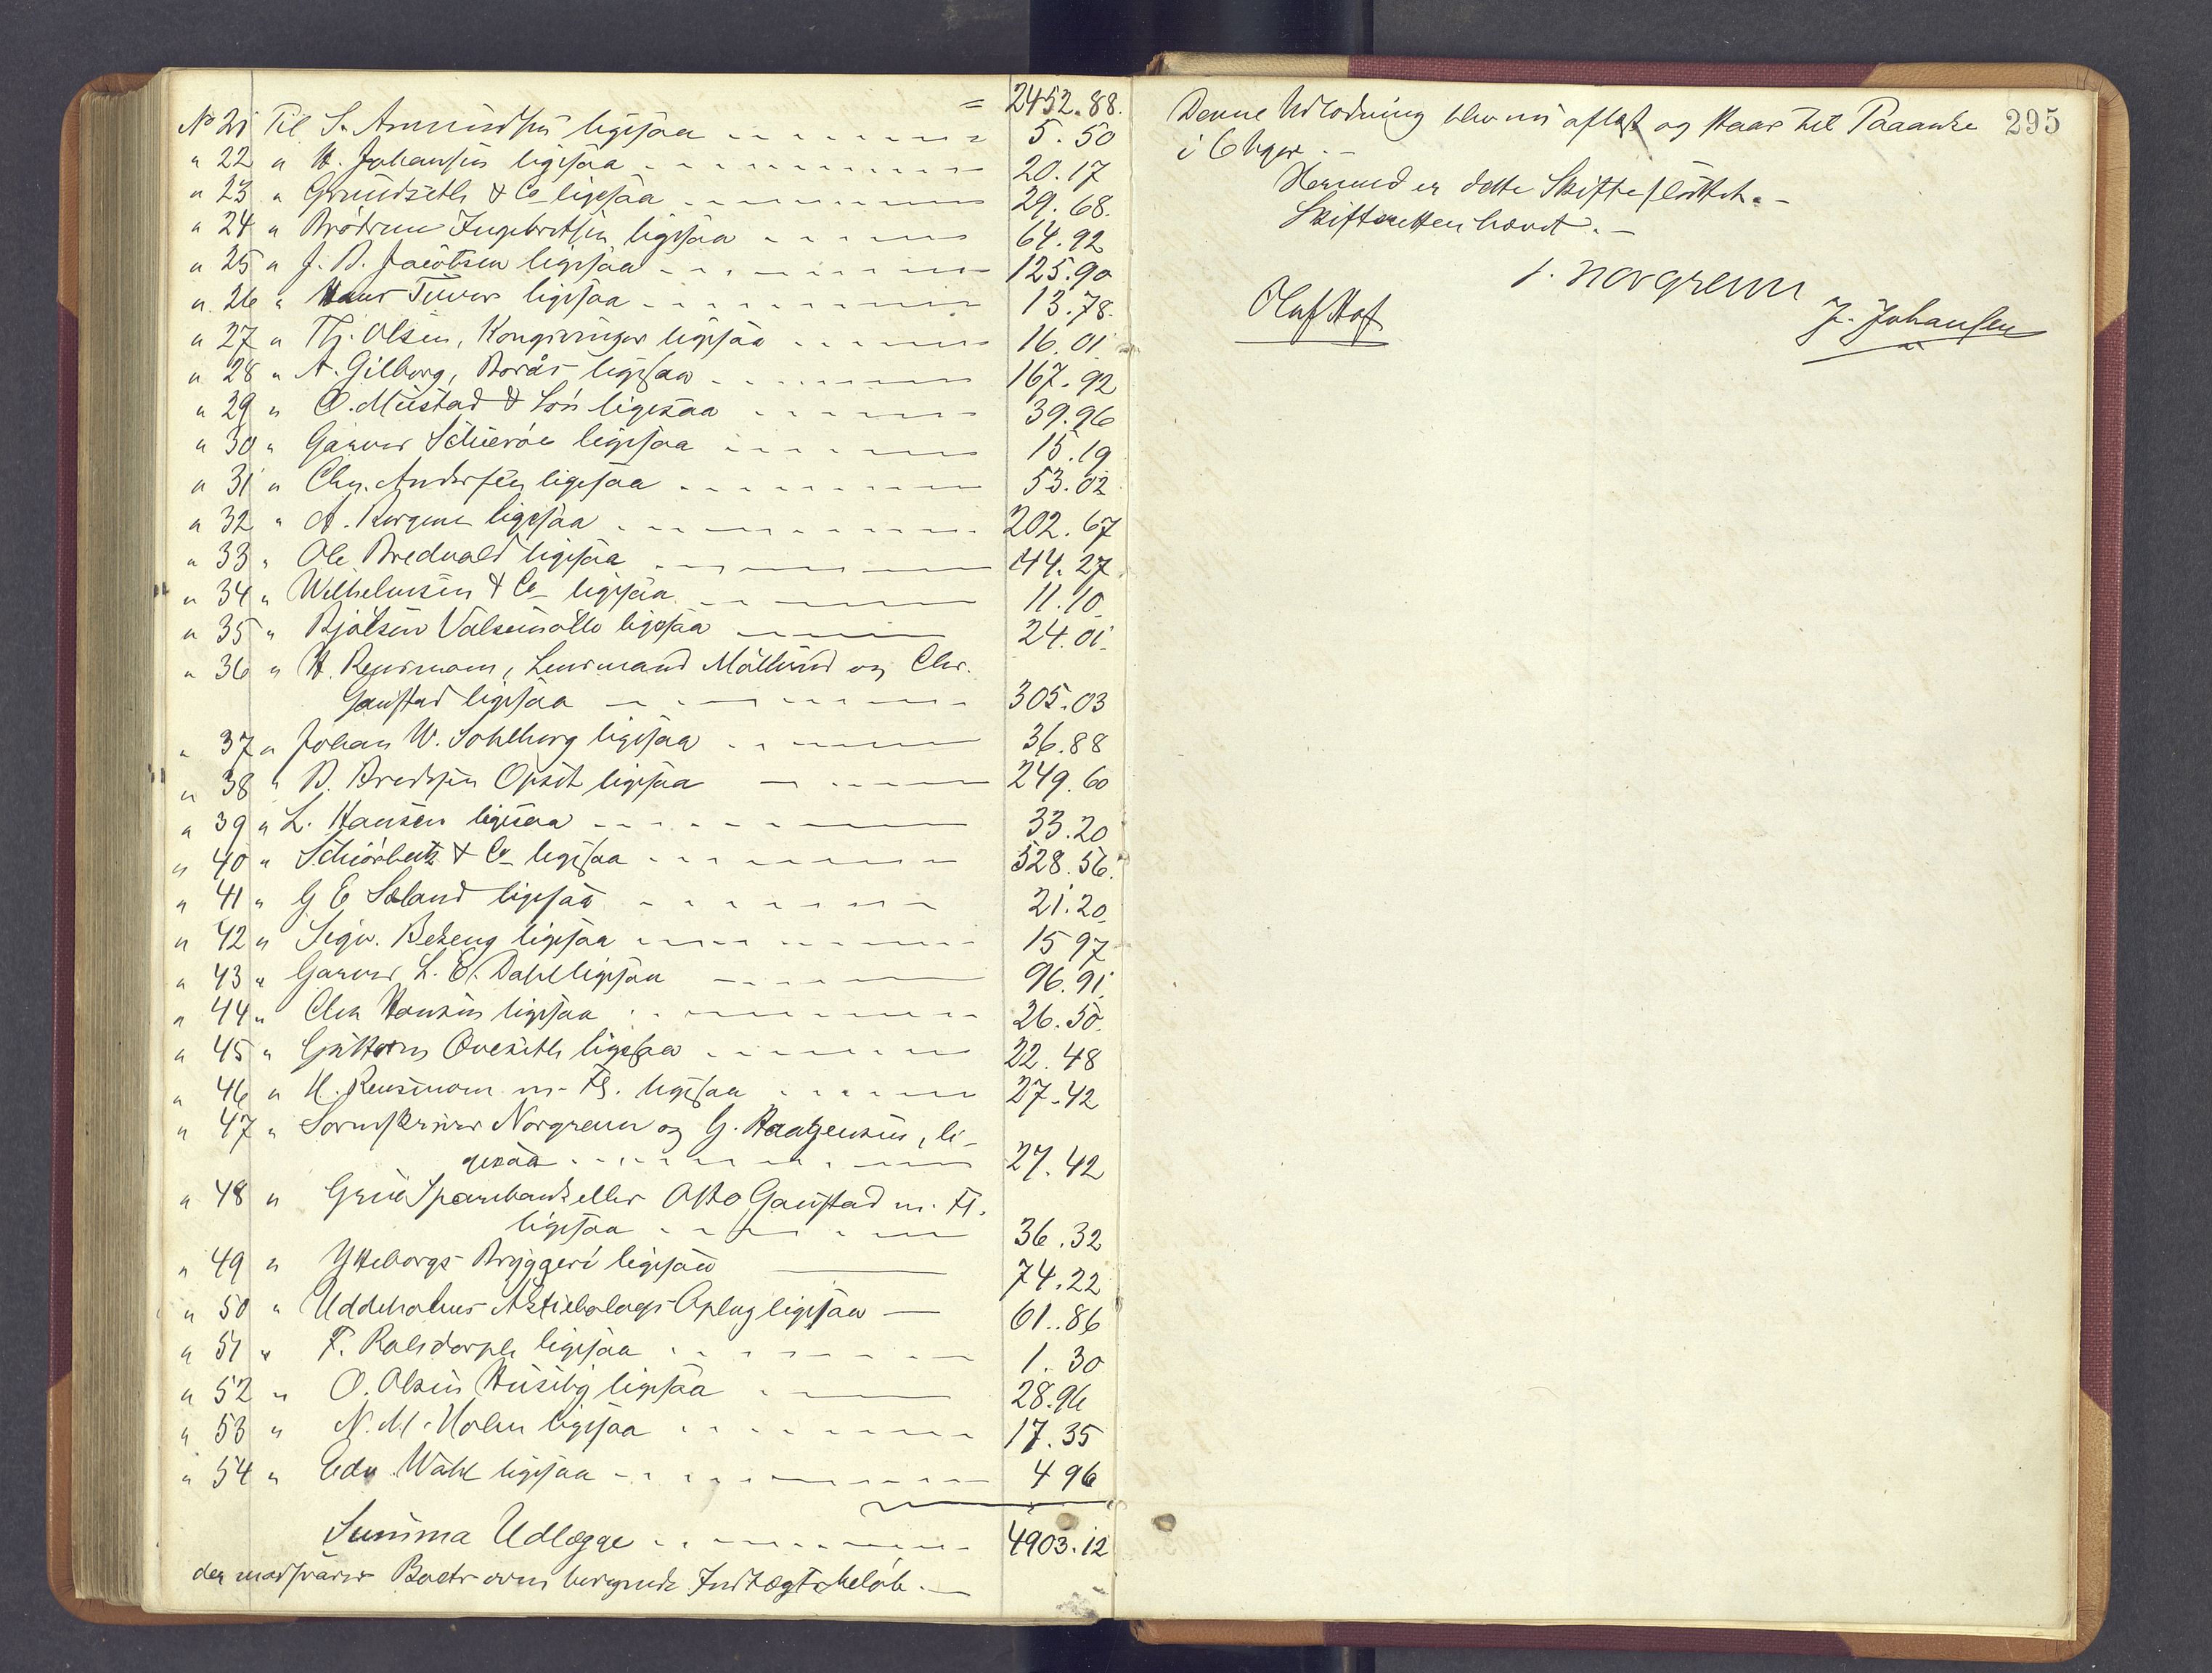 = 2452.88.
No 21 Til S. Amundsen ligesaa 5.50
" 22 " H. Johansen ligesaa 20.17
" 23 " Grundseth & Co ligesaa 29.68.
" 24 " Brödrene Ingebretsen ligesaa 64.92
" 25 " J. B. Jacobsen ligesaa 125.90
" 26 " Hans ligesaa 13.78.
" 27 " Th. Olsen, Kongsvinger ligesaa 16.01
" 28 " A. Gilborg, Borås ligesaa 167.92
" 29 " O. Mustad & Søn ligesaa 39.96
" 30 " Garver Schierön ligesaa 15.19
" 31 " Chr. Andersen ligesaa 53.02
" 32 " A. Borgene ligesaa 202.67
" 33 " Ole Bredvold ligesaa 44.27
" 34 " Wilhelmsen & Co ligesaa 11.10
" 35 " Bjölsen Valsemölle ligesaa 24.01.
" 36 " H. Rensmoen, Lensmand Möllerud og Chr.
Gaustad ligesaa 305.03
" 37 " Johan W. Sohlberg ligesaa 36.88
" 38 " B. Bredesen Opset ligesaa 249.60
" 39 " L. Hansen ligesaa 33.20
" 40 " Schiörbeck & Co ligesaa 528.56.
" 41 " G E Sæland ligesaa 21.20
" 42 " Sigv. Bekeng ligesaa 15 97
" 43 " Garver L. E. Dahl ligesaa 96.91.
" 44 " Chr Hansen ligesaa 26.50.
" 45 " Guttorm Oveseth ligesaa 22.48
" 46 " H. Rensmoen m. Fl. ligesaa 27.42
" 47 " Sorenskriver Norgrenn og G. Haagensen, li-
gesaa 27.42
" 48 " Grue Sparebank eller Otto Gaustad m. Fl.
ligesaa 36.32
" 49 " Ytteborgs Bryggeri ligesaa 74.22
" 50 " Uddeholms Aktiebolags Oplag ligesaa 61.86
" 51 " F. Ralsdorph ligesaa 1.30
" 52 " O. Olsen Huseby ligesaa 28.96
" 53 " N. M. Holm ligesaa 17.35
" 54 " Edv. Wahl ligesaa 4 96
Summa Udlægge 4903.12
der modsvarer Boets oven beregnede Indtægtsbeløb.
295
Denne Udlodning blev nu oplæst og staar til Paaanke
i 6 Uger.
Hermed er dette Skifte sluttet.
Skifteretten hævet.
J. Norgrenn
Olaf Hof
J. Johansen